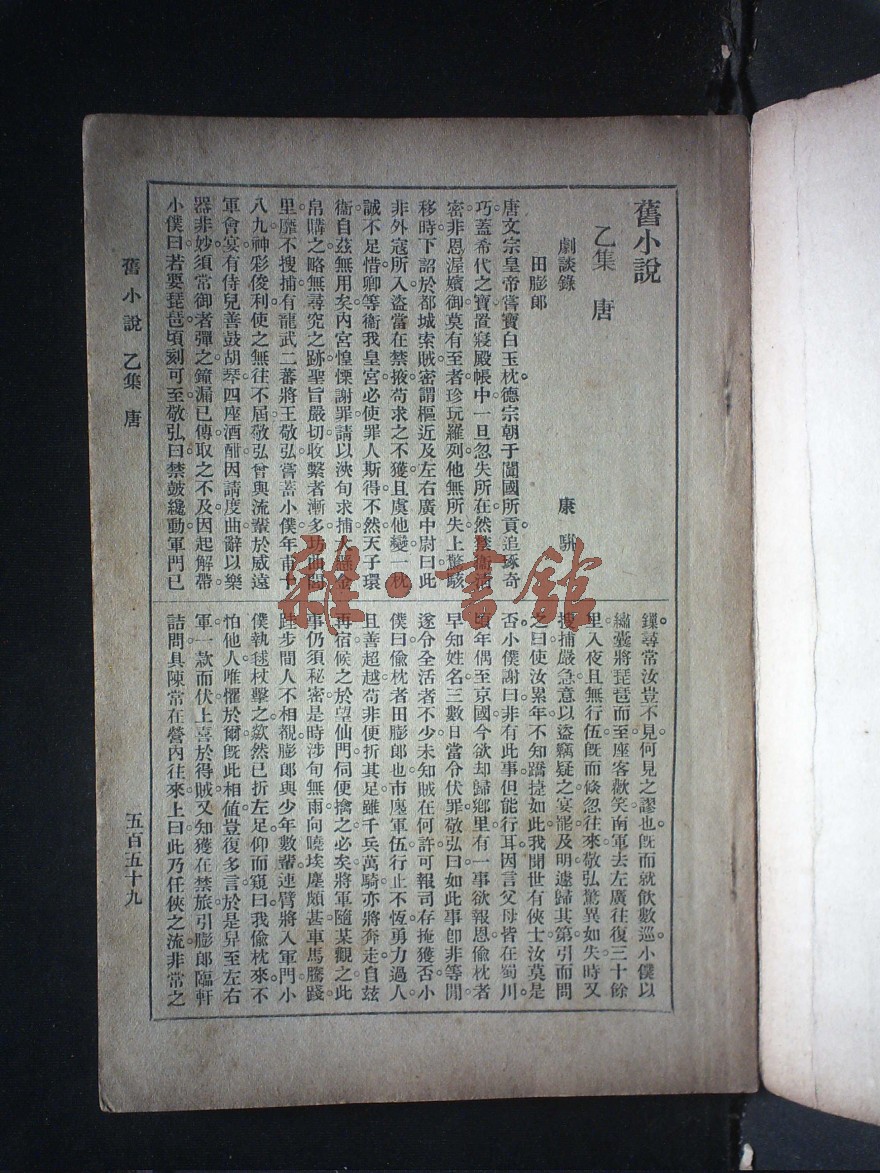 舊小說
乙集　唐
劇談錄　康駢
田膨郎
唐文宗皇帝嘗寶白玉枕。德宗朝于闐國所貢。追琢奇
巧。蓋希代之寶。置寢殿帳中。一旦忽失所在。然禁衛清
密。非恩渥嬪御莫有至者。珍玩羅列。他無所失。上驚駭
移時。下詔於都城索賊。密謂樞近及左右廣中尉曰。此
非外寇所入。盜當在禁掖。苟求之不獲。且虞他變。一枕
誠不足惜。卿等衞我皇宮。必使罪人斯得。不然。天子環
衞自茲無用矣。內宮惶慄謝罪。請以浹旬求捕。大縣金
帛購之。略無尋究之跡。聖旨嚴切。收繫者漸多。坊曲閭
里。靡不搜捕。有龍武二蕃將王敬弘嘗蓄小僕。年甫十
八九。神彩俊利。使之無往不屆。敬弘曾與流輩於威遠
軍會宴。有侍兒善鼓胡琴。四座酒酣。因請度曲。辭以樂
器非妙。須常御者彈之。鐘漏已傳。取之不及。因起解帶。
小僕曰。若要琵琶。頃刻可至。敬弘曰。禁鼓纔動。軍門已
鏁。尋常汝豈不見。何見之謬也。既而就飲數巡。小僕以
繡囊將琵琶而至。座客歡笑。南軍去左廣。往復三十餘
里。入夜且無行伍。既而倏忽往來。敬弘驚異如失。時又
搜捕嚴急。意以盜竊疑之。宴罷及明。遽歸其第。引而問
之曰。使汝累年。不知蹻捷如此。我聞世有俠士。汝莫是
否。小僕謝曰。非有此事。但能行耳。因言父母皆在蜀川。
頃年偶至京國。今欲却歸鄉里。有一事欲報恩。偷枕者
早知姓名。三數日當令伏罪。敬弘曰。如此事。卽非等閒。
遂令全活者不少。未知賊在何許。可報司存掩獲否。小
僕曰。偷枕者田膨郎也。市廛軍伍。行止不恆。勇力過人。
且善超越。苟非便折其足。雖千兵萬騎。亦將奔走。自茲
再宿。候之於望仙門。伺便擒之必矣。將軍隨某觀之。此
事仍須秘密。是時涉旬無雨。向曉埃塵頗甚。車馬騰踐。
跬步間人不相覩。膨郎與少年數輩連臂將入軍門。小
僕執毬杖擊之。欻然已折左足。仰而窺曰。我偷枕來不
怕他人。唯懼於爾。旣此相値。豈復多言。於是舁至左右
軍。一款而伏。上喜於得賊。又知獲在禁旅。引膨郎臨軒
詰問。具陳常在營內往來。上曰。此乃任俠之流。非常之
舊小說　乙集　唐
五百五十九
雜·書館